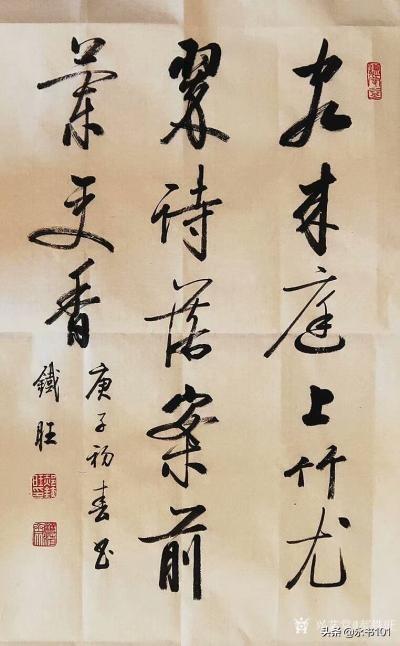 来庭上竹尤
翠诗落案前
蘭更香
庚子初春书
鐵旺
头条 @永书101